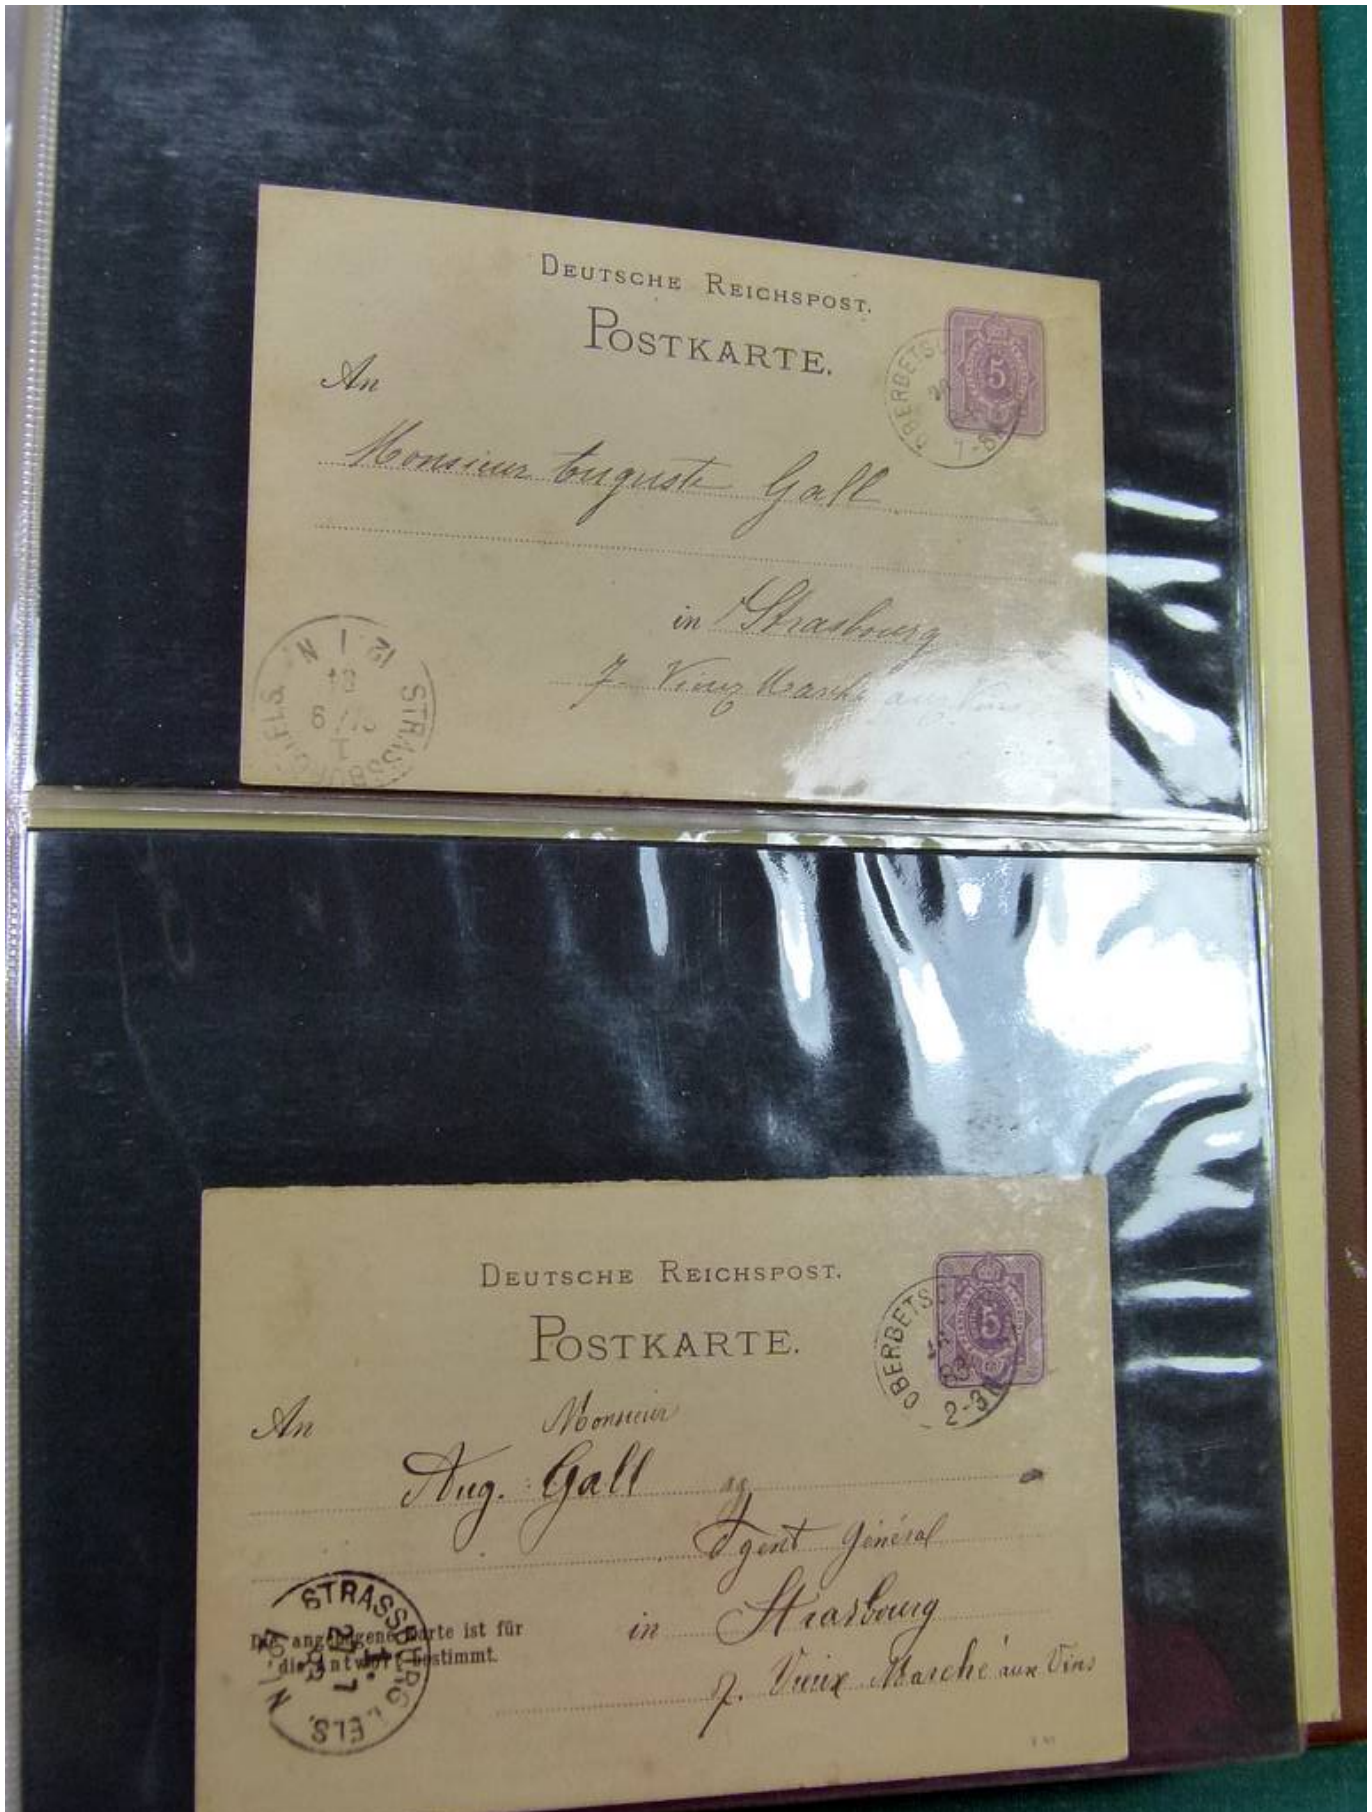 DEUTSCHE REICHSPOST.
POSTKARTE.
5
OBERBETSC
7-8N
An
Monsieur Auguste Gall
in Strasbourg
7. Vieux Marché aux Vins
STRASSBURG I. ELS.
DEUTSCHE REICHSPOST.
POSTKARTE.
5
OBERBETS
83
2-3N
An Monsieur
Aug. Gall
Agent Général
in Strasbourg
7. Vieux Marché aux Vins
Die angebogene Karte ist für
die Antwort bestimmt.
STRASSBURG I. ELS.